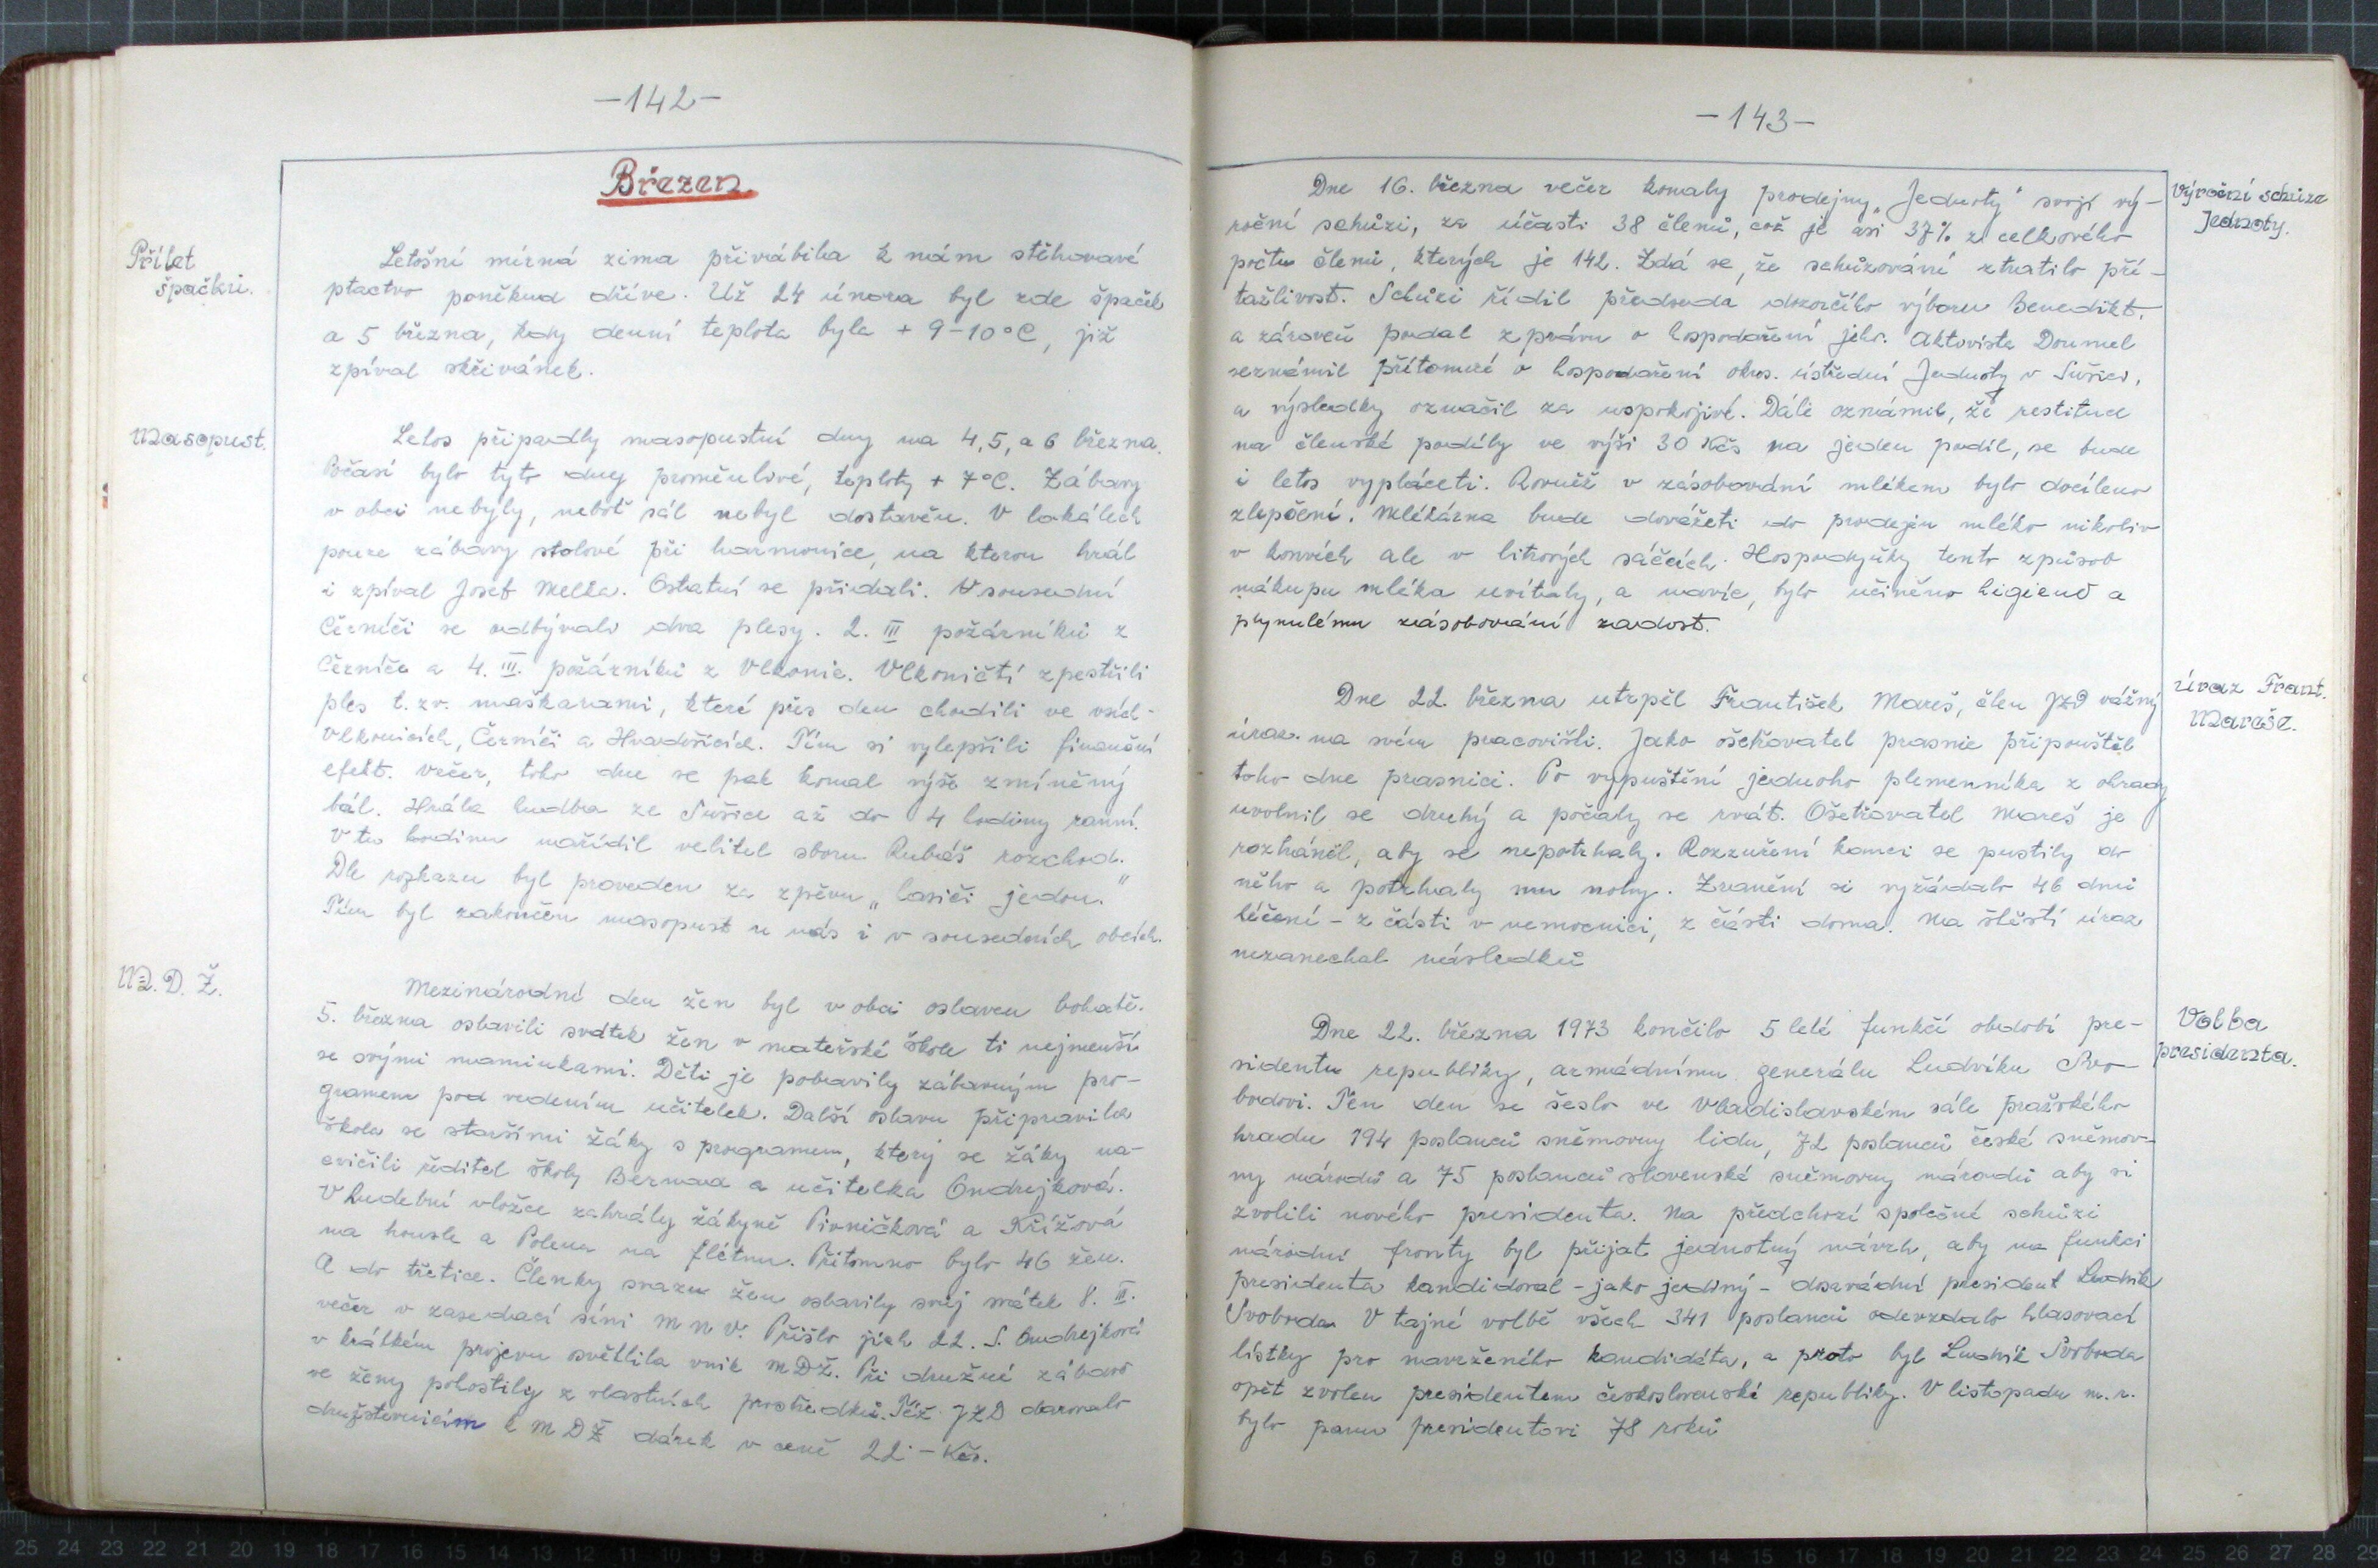 -142-
Březen
Přílet
špačků.
Letošní mírná zima přivábila k nám stěhovavé
ptactvo poněkud dříve. Už 24 února byl zde špaček
a 5 března, kdy denní teplota byla + 9-10°C, již
zpíval skřivánek.
Masopust.
Letos připadly masopustní dny na 4, 5, a 6 března.
Počasí bylo tyto dny proměnlivé, teploty + 7°C. Zábavy
v obci nebyly, neboť sál nebyl dostavěn. V lokálech
pouze zábavy stolové při harmonice, na kterou hrál
i zpíval Josef Melka. Ostatní se přidali. V sousední
Čermíči se odbývaly dva plesy. 2. III požárníků z
Čermíče a 4. III. požárníků z Vlkonic. Vlkoničtí zpestřili
ples t. zv. maškarami, které přes den chodili ve vsích -
Vlkonicích, Čermíči a Hradešicích. Tím si vylepšili finanční
efekt. Večer, toho dne se pak konal výše zmíněný
bál. Hrála hudba ze Sušice až do 4 hodiny ranní.
V tu hodinu nařídil velitel sboru Rubáš rozchod.
Dle rozkazu byl proveden za zpěvu „hasiči jedou."
Tím byl zakončen masopust u nás i v sousedních obcích.
M. D. Ž.
Mezinárodní den žen byl v obci oslaven bohatě.
5. března oslavili svátek žen v mateřské škole ti nejmenší
se svými maminkami. Děti je pobavily zábavným pro-
gramem pod vedením učitelek. Další oslavu připravila
škola se staršími žáky s programem, který se žáky na-
cvičili ředitel školy Bernad a učitelka Ondrejková.
V hudební vložce zahrály žákyně Pivničková a Křížová
na housle a Polena na flétnu. Přítomno bylo 46 žen.
A do třetice. Členky svazu žen oslavily svůj svátek 8. III.
večer v zasedací síni MNV. Přišlo jich 22. S. Ondrejková
v krátkém projevu osvětlila vnik MDŽ. Při družné zábavě
se ženy pohostily z vlastních prostředků. Též JZD darovalo
družstevnicím k MDŽ dárek v ceně 22.- Kčs.
-143-
Výroční schůze
Jednoty.
Dne 16. března večer konaly prodejny „Jednoty" svojí vý-
roční schůzi, za účasti 38 členů, což je asi 37% z celkového
počtu členů, kterých je 142. Zdá se, že schůzování ztratilo při-
tažlivost. Schůzi řídil předseda dozorčího výboru Benedikt,
a zároveň podal zprávu o hospodaření jeho. Aktivista Doumel
seznámil přítomné o hospodaření okres. ústřední Jednoty v Sušici,
a výsledky označil za uspokojivé. Dále oznámil, že restituce
na členské podíly ve výši 30 Kčs na jeden podíl, se bude
i letos vypláceti. Rovněž v zásobování mlékem bylo docíleno
zlepšení. Mlékárna bude dovážeti do prodejen mléko nikoliv
v konvích ale v litrových sáčcích. Hospodyňky tento způsob
nákupu mléka uvítaly, a navíc, bylo učiněno higieně a
plynulému zásobování zadost.
úraz Frant.
Mareše.
Dne 22. března utrpěl František Mareš, člen JZD vážný
úraz na svém pracovišti. Jako ošetřovatel prasnic připouštěl
toho dne prasnici. Po vypuštění jednoho plemenníka z ohrady
uvolnil se druhý a počaly se rvát. Ošetřovatel Mareš je
rozháněl, aby se nepotrhaly. Rozzuření kanci se pustily do
něho a potrhaly mu nohy. Zranění si vyžádalo 46 dnů
léčení - z části v nemocnici, z části doma. Na štěstí úraz
nezanechal následků
Volba
presidenta.
Dne 22. března 1973 končilo 5 leté funkčí období pre-
sidentu republiky, armádnímu generálu Ludvíku Svo-
bodovi. Ten den se sešlo ve Vladislavském sále pražského
hradu 194 poslanců sněmovny lidu, 72 poslanců české sněmov-
ny národů a 75 poslanců slovenské sněmovny národů aby si
zvolili nového presidenta. Na předchozí společné schůzi
národní fronty byl přijat jednotný návrh, aby na funkci
presidenta kandidoval - jako jediný - dosavádní president Ludvík
Svoboda. V tajné volbě všech 341 poslanců odevzdalo hlasovací
lístky pro navrženého kandidáta, a proto byl Ludvík Svoboda
opět zvolen presidentem československé republiky. V listopadu m. r.
bylo panu presidentovi 78 roků